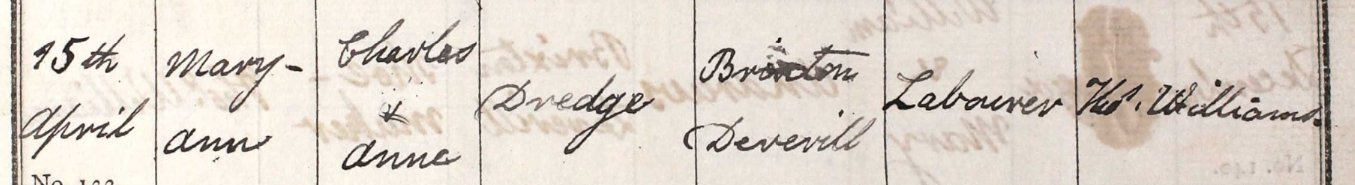 15th
April
Mary-
Ann
Charles
&
Anne
Dredge
Brixton
Deverill
Labourer
Thos. Williams
No.